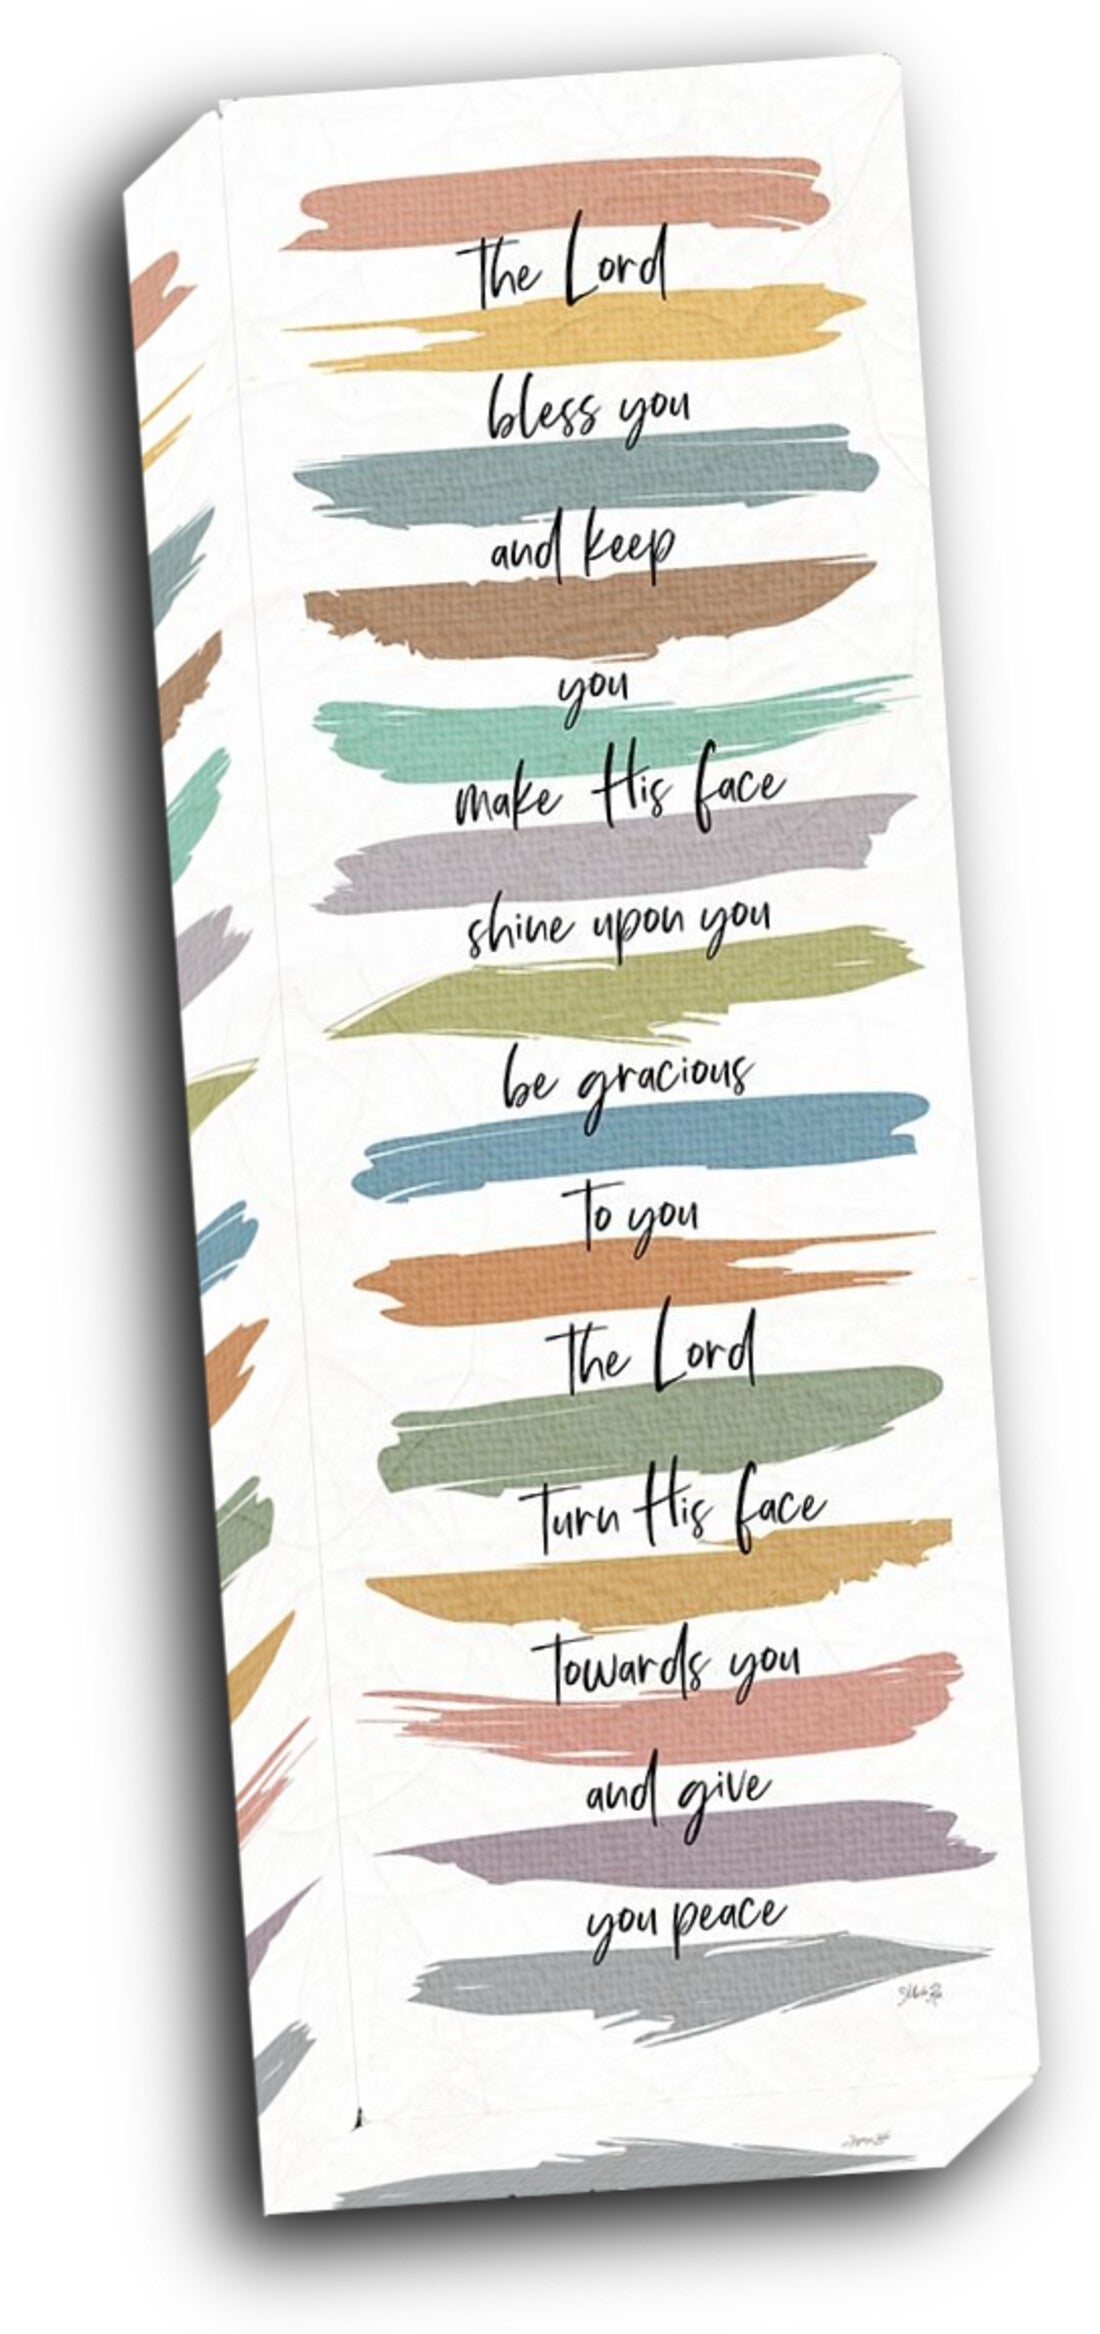 The Lord
bless you
and keep
you
make His face
shine upon you
be gracious
to you
The Lord
Turn His face
Towards you
and give
you peace